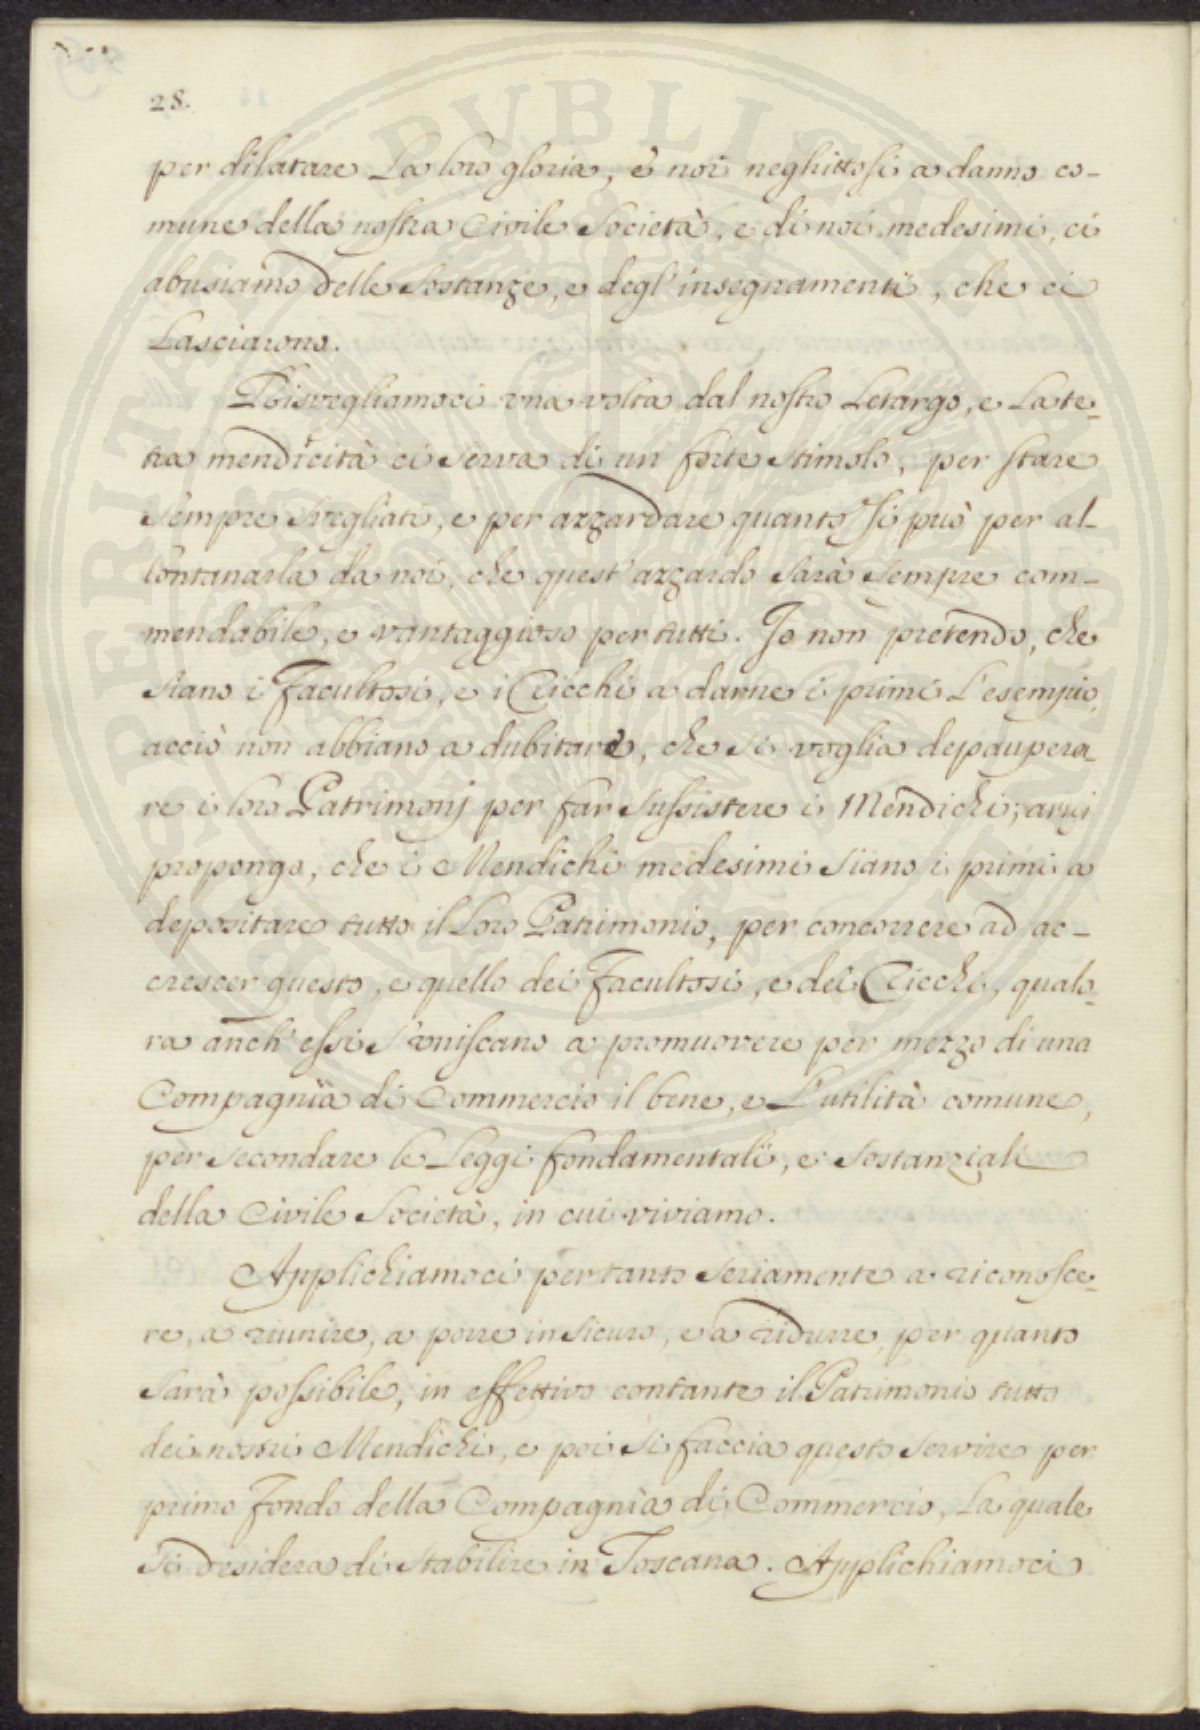 28.
per dilatare La loro gloria, e noi neghittosi a danno co-
mune della nostra Civile Società, e di noi medesimi, ci
abusiamo delle Sostanze, e degl'insegnamenti, che ci
Lasciarono.
Risvegliamoci una volta dal nostro Letargo, e La te-
tra mendicità ci serva di un forte stimolo, per stare
sempre svegliati, e per azzardare quanto si può per al-
lontanarla da noi, che quest'azzardo sarà sempre com-
mendabile, e vantaggioso per tutti. Io non pretendo, che
siano i Facultosi, e i Ricchi a darne i primi L'esempio,
acciò non abbiano a dubitare, che si voglia depaupera-
re i loro Patrimonj per far sussistere i Mendichi; anzi
propongo, che i Mendichi medesimi siano i primi a
depositare tutto il Loro Patrimonio, per concorrere ad ac-
crescer questo, e quello dei Facultosi, e dei Ricchi, qualo-
ra anch'essi s'uniscano a promuovere per mezzo di una
Compagnia di Commercio il bene, e L'utilità comune,
per secondare le Leggi fondamentali, e sostanziali
della Civile Società, in cui viviamo.
Applichiamoci per tanto seriamente a riconosce-
re, a riunire, a porre in sicuro, e a ridurre, per quanto
sarà possibile, in effettivo contante il Patrimonio tutto
dei nostri Mendichi, e poi si faccia questo servire per
primo Fondo della Compagnia di Commercio, La quale
si desidera di stabilire in Toscana. Applichiamoci